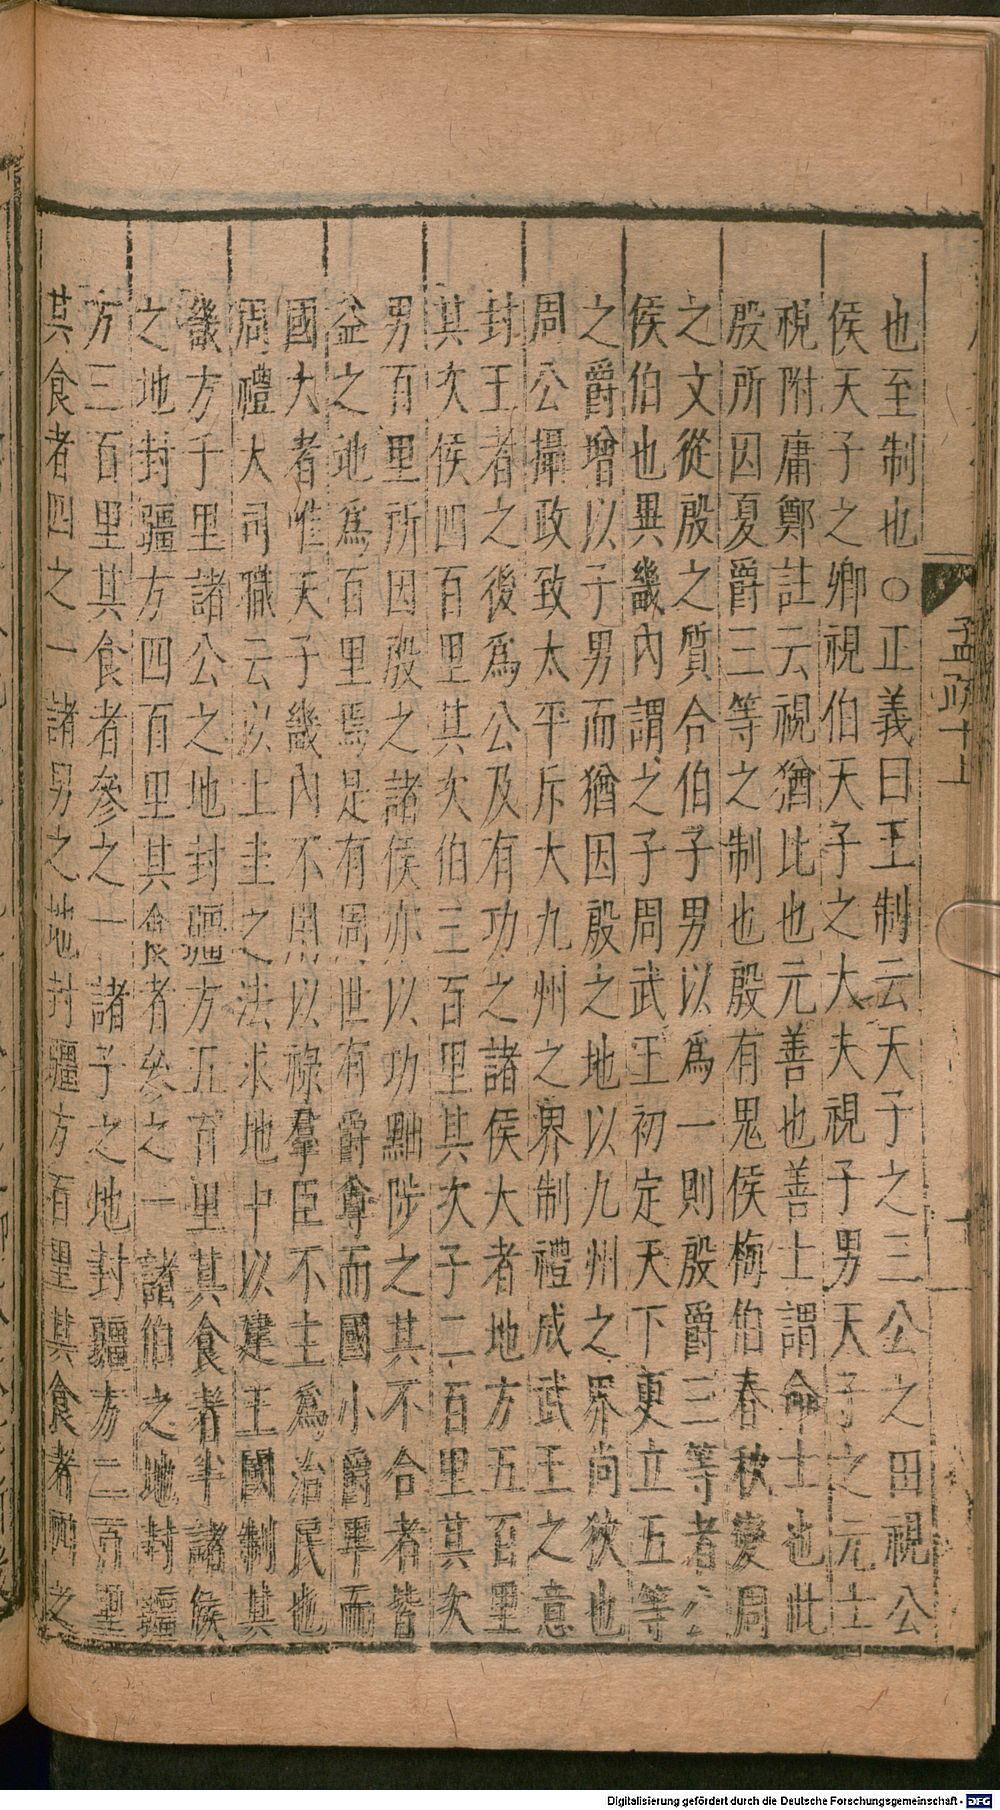 孟疏十上
也至制也○正義曰王制云天子之三公之田視公
侯天子之卿視伯天子之大夫視子男天子之元士
視附庸鄭註云視猶比也元善也善士謂命士也此
殷所因夏爵三等之制也殷有鬼侯梅伯春秋變周
之文從殷之質合伯子男以為一則殷爵三等者公
侯伯也異畿內謂之子周武王初定天下更立五等
之爵增以子男而猶因殷之地以九州之界尚狹也
周公攝政致太平斥大九州之界制禮成武王之意
封王者之後為公及有功之諸侯大者地方五百里
其次侯四百里其次伯三百里其次子二百里其次
男百里所因殷之諸侯亦以功黜陟之其不合者皆
益之地為百里焉是有周世有爵尊而國小爵卑而
國大者惟天子畿內不增以祿羣臣不主為治民也
周禮大司職云以土圭之法求地中以建王國制其
畿方千里諸公之地封疆方五百里其食者半諸侯
之地封疆方四百里其食者參之一諸伯之地封疆
方三百里其食者參之一諸子之地封疆方二百里
其食者四之一諸男之地封疆方百里其食者四之
Digitalisierung gefördert durch die Deutsche Forschungsgemeinschaft - DFG